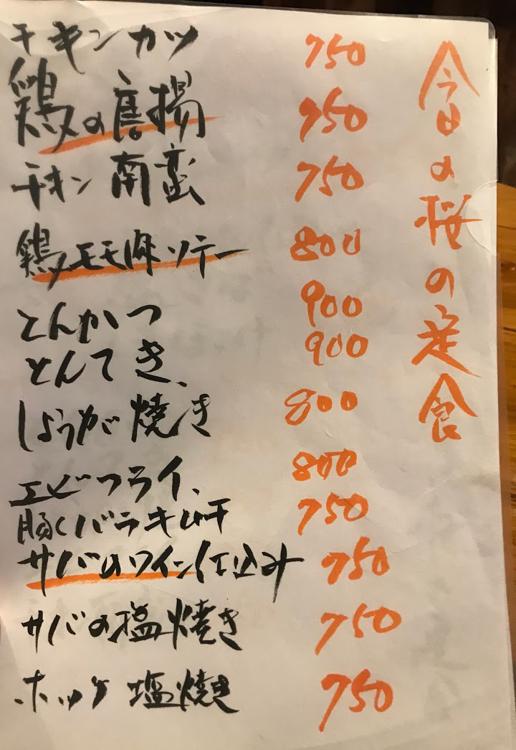 今日の桜の定食
チキンカツ 750
鶏の唐揚 750
チキン南蛮 750
鶏モモ肉ソテー 800
とんかつ 900
とんてき 900
しょうが焼き 800
エビフライ 800
豚バラキムチ 750
サバのワイン仕込み 750
サバの塩焼き 750
ホッケ塩焼き 750